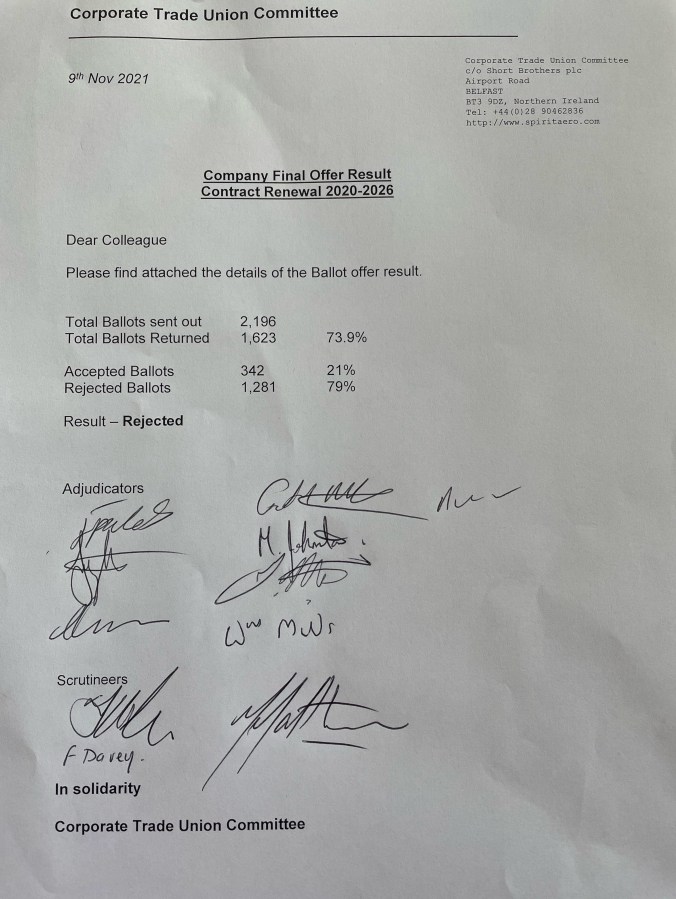 Corporate Trade Union Committee
9th Nov 2021
Corporate Trade Union Committee
c/o Short Brothers plc
Airport Road
BELFAST
BT3 9DZ, Northern Ireland
Tel: +44(0)28 90462836
http://www.spiritaero.com
Company Final Offer Result
Contract Renewal 2020-2026
Dear Colleague
Please find attached the details of the Ballot offer result.
Total Ballots sent out 2,196
Total Ballots Returned 1,623 73.9%
Accepted Ballots 342 21%
Rejected Ballots 1,281 79%
Result – Rejected
Adjudicators
Scrutineers
F Davey.
In solidarity
Corporate Trade Union Committee